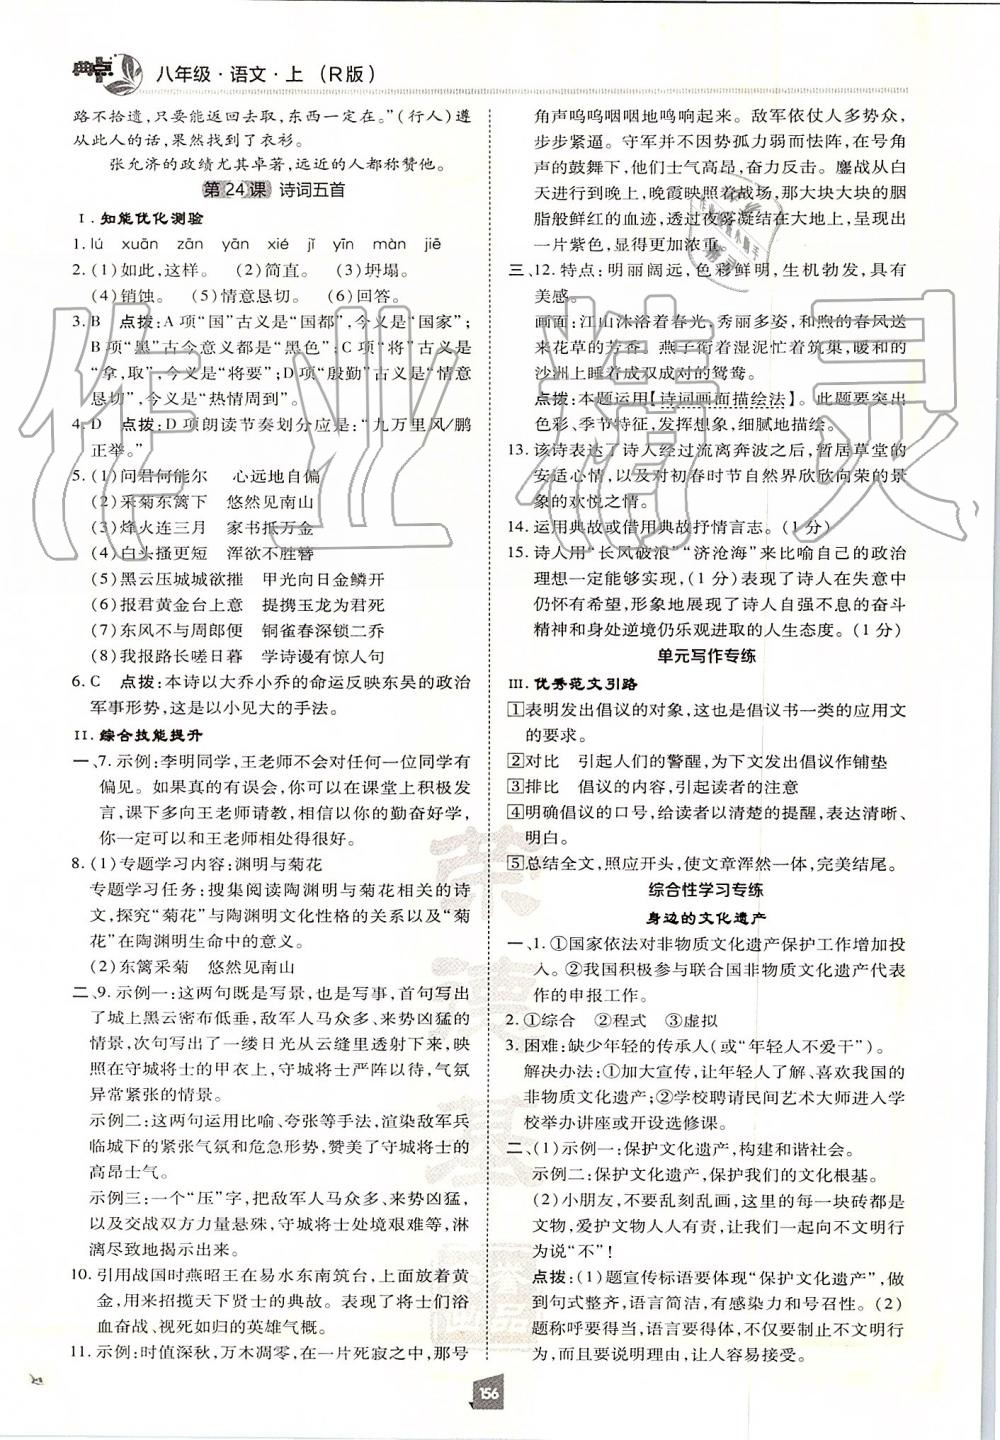 典点 八年级·语文·上 （R版）
路不拾遗,只要能返回去取,东西一定在。”(行人)遵
从此人的话,果然找到了衣衫。
张允济的政绩尤其卓著,远近的人都称赞他。
第24课 诗词五首
I. 知能优化测验
1. lú xuān zān yān xié jǐ yīn màn jiē
2. (1)如此,这样。 (2)简直。 (3)坍塌。
(4)销蚀。 (5)情意恳切。 (6)回答。
3. B 点拨:A项“国”古义是“国都”,今义是“国家”;
B项“黑”古今意义都是“黑色”;C项“将”古义是
“拿,取”,今义是“将要”;D项“殷勤”古义是“情意
恳切”,今义是“热情周到”。
4. D 点拨:D项朗读节奏划分应是:“九万里风/鹏
正举。”
5. (1)问君何能尔 心远地自偏
(2)采菊东篱下 悠然见南山
(3)烽火连三月 家书抵万金
(4)白头搔更短 浑欲不胜簪
(5)黑云压城城欲摧 甲光向日金鳞开
(6)报君黄金台上意 提携玉龙为君死
(7)东风不与周郎便 铜雀春深锁二乔
(8)我报路长嗟日暮 学诗谩有惊人句
6. C 点拨:本诗以大乔小乔的命运反映东吴的政治
军事形势,这是以小见大的手法。
II. 综合技能提升
一、7. 示例:李明同学,王老师不会对任何一位同学有
偏见。如果真的有误会,你可以在课堂上积极发
言,课下多向王老师请教,相信以你的勤奋好学,
你一定可以和王老师相处得很好。
8. (1)专题学习内容:渊明与菊花
专题学习任务:搜集阅读陶渊明与菊花相关的诗
文,探究“菊花”与陶渊明文化性格的关系以及“菊
花”在陶渊明生命中的意义。
(2)东篱采菊 悠然见南山
二、9. 示例一:这两句既是写景,也是写事,首句写出
了城上黑云密布低垂,敌军人马众多、来势凶猛的
情景,次句写出了一缕日光从云缝里透下来,映
照在守城将士的甲衣上,守城将士严阵以待,气氛
异常紧张的情景。
示例二:这两句运用比喻、夸张等手法,渲染敌军兵
临城下的紧张气氛和危急形势,赞美了守城将士的
高昂士气。
示例三:一个“压”字,把敌军人马众多、来势凶猛,
以及交战双方力量悬殊、守城将士处境艰难等,淋
漓尽致地揭示出来。
10. 引用战国时燕昭王在易水东南筑台,上面放着黄
金,用来招揽天下贤士的典故。表现了将士们浴
血奋战、视死如归的英雄气概。
11. 示例:时值深秋,万木凋零,在一片死寂之中,那号
角声呜呜咽咽地鸣响起来。敌军依仗人多势众,
步步紧逼。守军并不因势孤力弱而怯阵,在号角
声的鼓舞下,他们士气高昂,奋力反击。鏖战从白
天进行到夜晚,晚霞映照着战场,那大块大块的胭
脂般鲜红的血迹,透过夜雾凝结在大地上,呈现出
一片紫色,显得更加浓重。
三、12. 特点:明丽阔远,色彩鲜明,生机勃发,具有
美感。
画面:江山沐浴着春光,秀丽多姿,和煦的春风送
来花草的芳香。燕子衔着湿泥忙着筑巢,暖和的
沙洲上睡着成双成对的鸳鸯。
点拨:本题运用【诗词画面描绘法】。此题要突出
色彩、季节特征,发挥想象,细腻地描绘。
13. 该诗表达了诗人经过流离奔波之后,暂居草堂的
安适心情,以及对初春时节自然界欣欣向荣的景
象的欢悦之情。
14. 运用典故或借用典故抒情言志。(1分)
15. 诗人用“长风破浪”“济沧海”来比喻自己的政治
理想一定能够实现,(1分)表现了诗人在失意中
仍怀有希望,形象地展现了诗人强大不息的奋斗
精神和身处逆境仍乐观进取的人生态度。(1分)
单元写作专练
III. 优秀范文引路
1表明发出倡议的对象,这是倡议书一类的应用文
的要求。
2对比 引起人们的警醒,为下文发出倡议作铺垫
3排比 倡议的内容,引起读者的注意
4明确倡议的口号,给读者以清楚的提醒,表达清晰、
明白。
5总结全文,照应开头,使文章浑然一体,完美结尾。
综合性学习专练
身边的文化遗产
一、1. ①国家依法对非物质文化遗产保护工作增加投
入。②我国积极参与联合国非物质文化遗产代表
作的申报工作。
2. ①综合 ②程式 ③虚拟
3. 困难:缺少年轻的传承人(或“年轻人不爱干”)。
解决办法:①加大宣传,让年轻人了解、喜欢我国的
非物质文化遗产;②学校聘请民间艺术大师进入学
校举办讲座或开设选修课。
二、(1)示例一:保护文化遗产,构建和谐社会。
示例二:保护文化遗产,保护我们的文化根基。
(2)小朋友,不要乱刻乱画,这里的每一块砖都是
文物,爱护文物人人有责,让我们一起向不文明行
为说“不”!
点拨:(1)题宣传标语要体现“保护文化遗产”,做
到句式整齐,语言简洁,有感染力和号召性。(2)
题称呼要得当,语言要得体,不仅要制止不文明行
为,而且要说明理由,让人容易接受。
156
作业精灵
荣德基